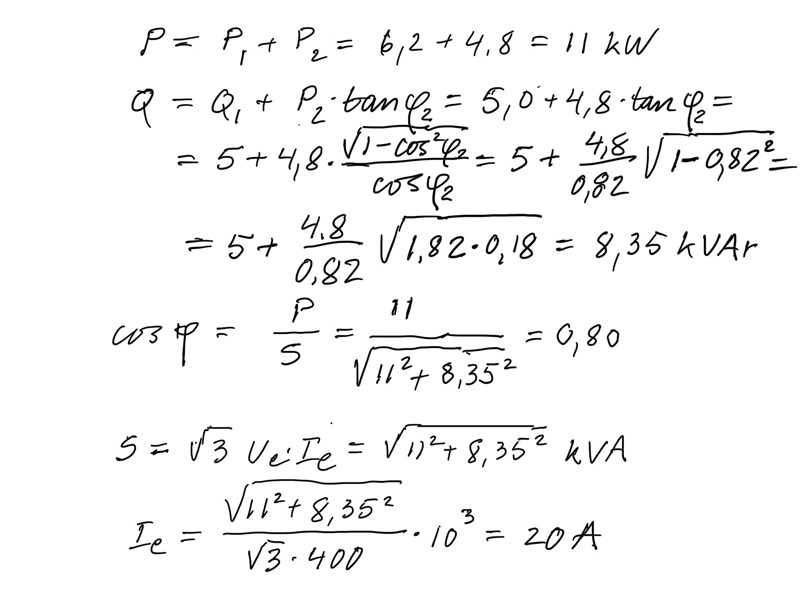 P = P₁ + P₂ = 6,2 + 4,8 = 11 kW
Q = Q₁ + P₂·tanφ₂ = 5,0 + 4,8·tanφ₂ =
= 5 + 4,8 · √(1-cos²φ₂)/cosφ₂ = 5 + 4,8/0,82 √(1-0,82²) =
= 5 + 4.8/0.82 √(1,82·0,18) = 8,35 kVAr
cos φ = P/S = 11/√(11² + 8,35²) = 0,80
S = √3 Ue·Ie = √(11² + 8,35²) kVA
Ie = √(11² + 8,35²)/(√3 · 400) · 10³ = 20 A